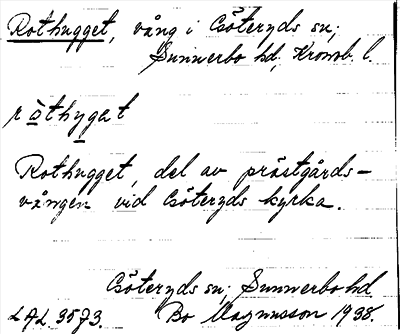 Rothugget, vång i Göteryds sn;
Sunnerbo hd, Kronob. l.
ròthygat
Rothugget, del av prästgårds-
vången vid Göteryds kyrka.
Göteryds sn; Sunnerbo hd.
LAL. 3573. Bo Magnusson 1938.